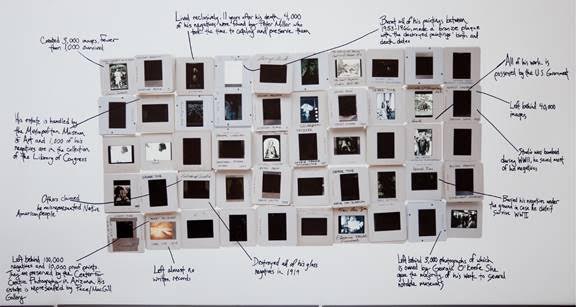 Lived reclusively, 11 years after his death, 4,000
of his negatives were found by Peter Miller who
took the time to catalog and preserve them
Created 3,000 images, Fewer
than 1,000 survived
Burnt all of his paintings between
1953-1966, made a bronze plaque
with the destroyed paintings' birth and
death dates
All of his work is
possessed by the U.S. Government
Left behind 40,000
images
His estate is handled by
the Metropolitan Museum
of Art and 1,000 of his
negatives are in the collection
of the Library of Congress
Studio was bombed
during WWII, he saved most
of his negatives
Others claimed
he misrepresented Native
American people
Buried his negatives under
the ground in case he didn't
survive WWII
Left behind 100,000
negatives and 10,000 proof prints
They are preserved by the Center for
Creative Photography in Arizona. His
estate is represented by Pace/MacGill
Gallery
Left almost no
written records
Destroyed all of his glass
negatives in 1919
Left behind 3,000 photographs of which
is owned by Georgia O'Keefe. She
gave the majority of his work to several
notable museums